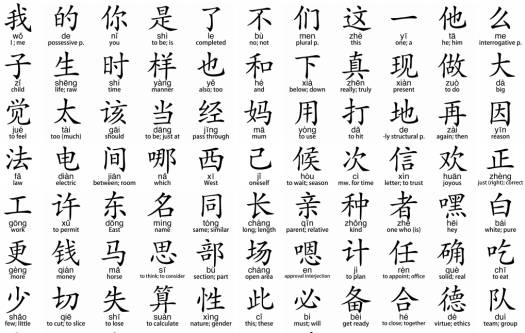 我 的 你 是 了 不 们 这 一 他 么
wǒ de nǐ shì le bù men zhè yī tā me
I; me possessive p. you to be; is completed no; not plural p. this one; a he; him interrogative p.
子 生 时 样 也 和 下 真 现 做 大
zǐ shēng shí yàng yě hé xià zhēn xiàn zuò dà
child life; raw time manner also; too and below; down really; truly present to do big
觉 太 该 当 经 妈 用 打 地 再 因
jué tài gāi dāng jīng mā yòng dǎ de zài yīn
to feel too (much) should to be; just at pass through mā mum to use to hit -ly structural p. again; then reason
法 电 间 哪 西 己 候 次 信 欢 正
fǎ diàn jiān nǎ xī jǐ hòu cì xìn huān zhèng
law electric between; room which West oneself to wait; season mw. for time letter; to trust joyous just (right); correct
工 许 东 名 同 长 亲 种 者 嘿 白
gōng xǔ dōng míng tóng cháng qīn zhǒng zhě hēi bái
work to permit East name same; similar long; length parent; relative kind one who (is) hey white; pure
更 钱 马 思 部 场 嗯 计 任 确 吃
gèng qián mǎ sī bù chǎng en jì rèn què chī
more money horse to think; to consider section; part open area approval interjection to plan to appoint; office solid; real to eat
少 切 失 算 性 此 必 备 合 德 队
shǎo qiē shī suàn xìng cǐ bì bèi hé dé duì
few; little to cut; to slice to lose to calculate nature; gender this; these must; will get ready to close; together virtue; ethics team; group